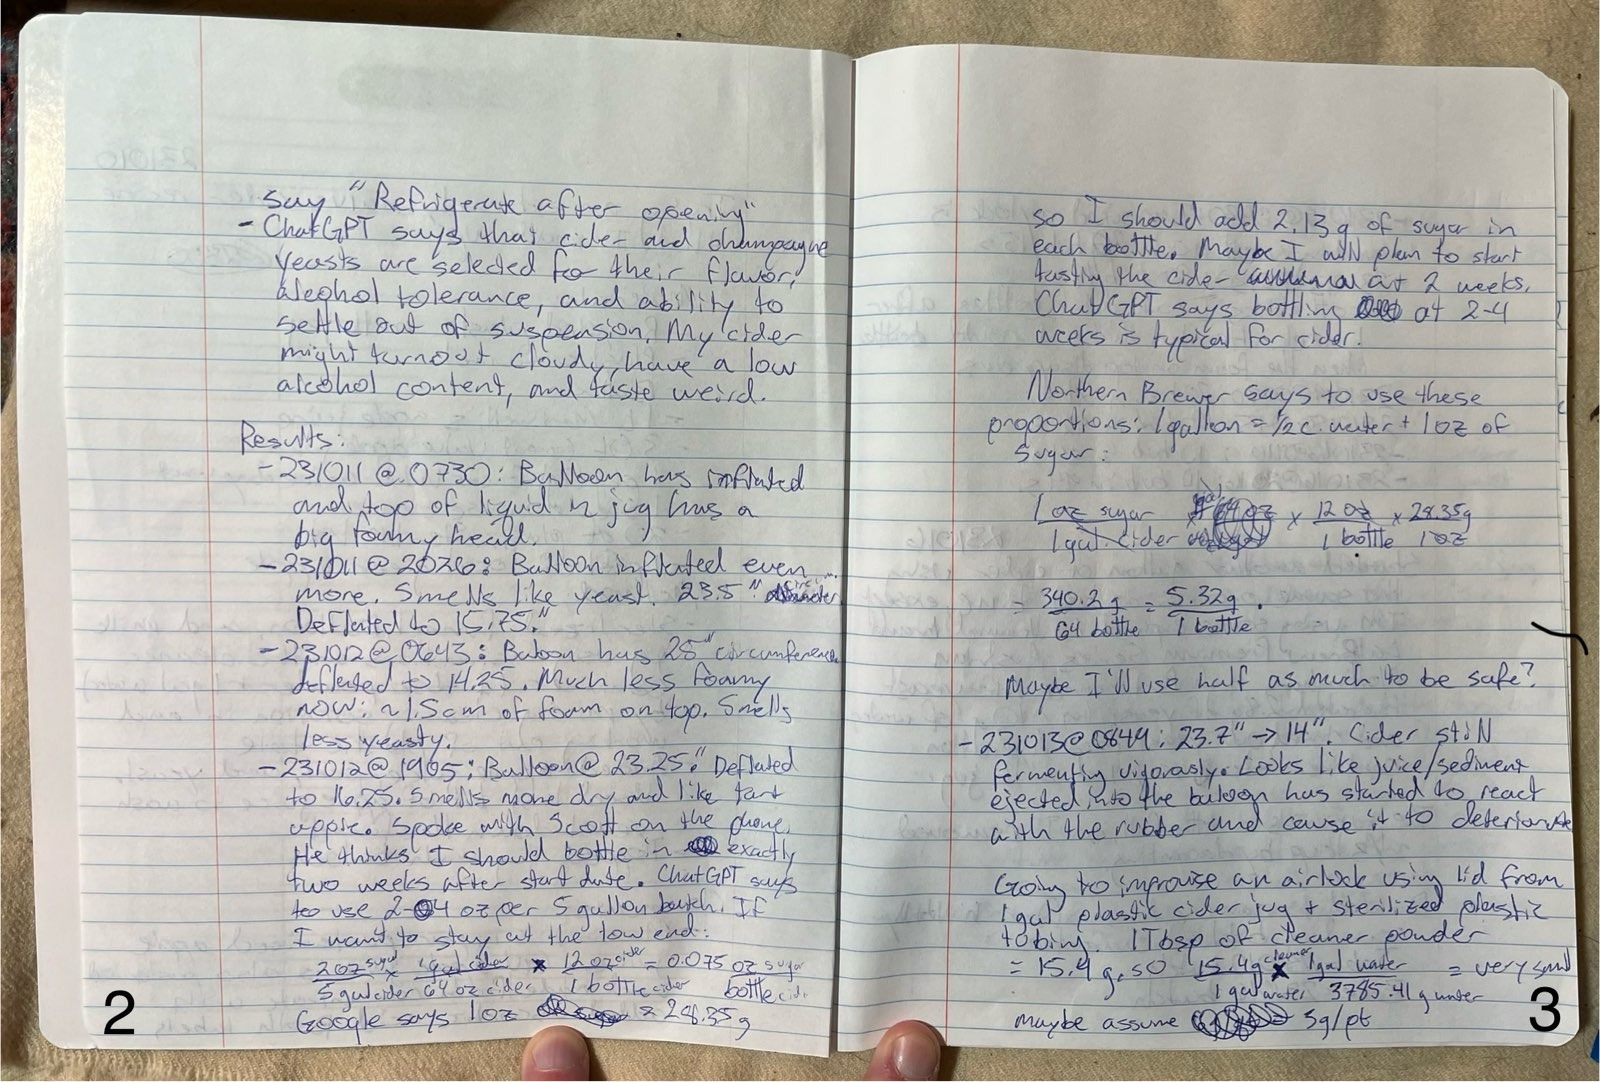 say "Refrigerate after opening"
- ChatGPT says that cider and champagne
yeasts are selected for their flavor,
alcohol tolerance, and ability to
settle out of suspension. My cider
might turn out cloudy, have a low
alcohol content, and taste weird.
Results:
- 231011 @ 0730: Balloon has inflated
and top of liquid in jug has a
big foamy head.
- 231011 @ 2026: Balloon inflated even
more. Smells like yeast. 23.5" circum.
Deflated to 15.75."
- 231012 @ 0643: Baloon has 25" circumference
deflated to 14.25. Much less foamy
now: ~1.5cm of foam on top. Smells
less yeasty.
- 231012 @ 1905: Balloon @ 23.25." Deflated
to 16.25. Smells more dry and like tart
apple. Spoke with Scott on the phone.
He thinks I should bottle in exactly
two weeks after start date. ChatGPT says
to use 2-4 oz per 5 gallon batch. If
I want to stay at the low end:
2 oz sugar / 5 gal cider × 1 gal cider / 64 oz cider × 12 oz cider / 1 bottle cider = 0.075 oz sugar / bottle cider
Google says 1oz = 28.35g
2
so I should add 2.13g of sugar in
each bottle. Maybe I will plan to start
tasting the cider at 2 weeks.
ChatGPT says bottling at 2-4
weeks is typical for cider.
Northern Brewer says to use these
proportions: 1 gallon = 1/2 c. water + 1oz of
sugar:
1 oz sugar / 1 gal. cider × 1 gal / 64 oz × 12 oz / 1 bottle × 28.35g / 1oz
= 340.2g / 64 bottle = 5.32g / 1 bottle.
Maybe I'll use half as much to be safe?
- 231013 @ 0849: 23.7" → 14". Cider still
fermenting vigorously. Looks like juice/sediment
ejected into the baloon has started to react
with the rubber and cause it to deteriorate
Going to improvise an airlock using lid from
1 gal plastic cider jug + sterilized plastic
tubing. 1Tbsp of cleaner powder
= 15.4 g, so 15.4g cleaner / 1 gal water × 1 gal water / 3785.41 g water = very small
maybe assume 5g/pt
3